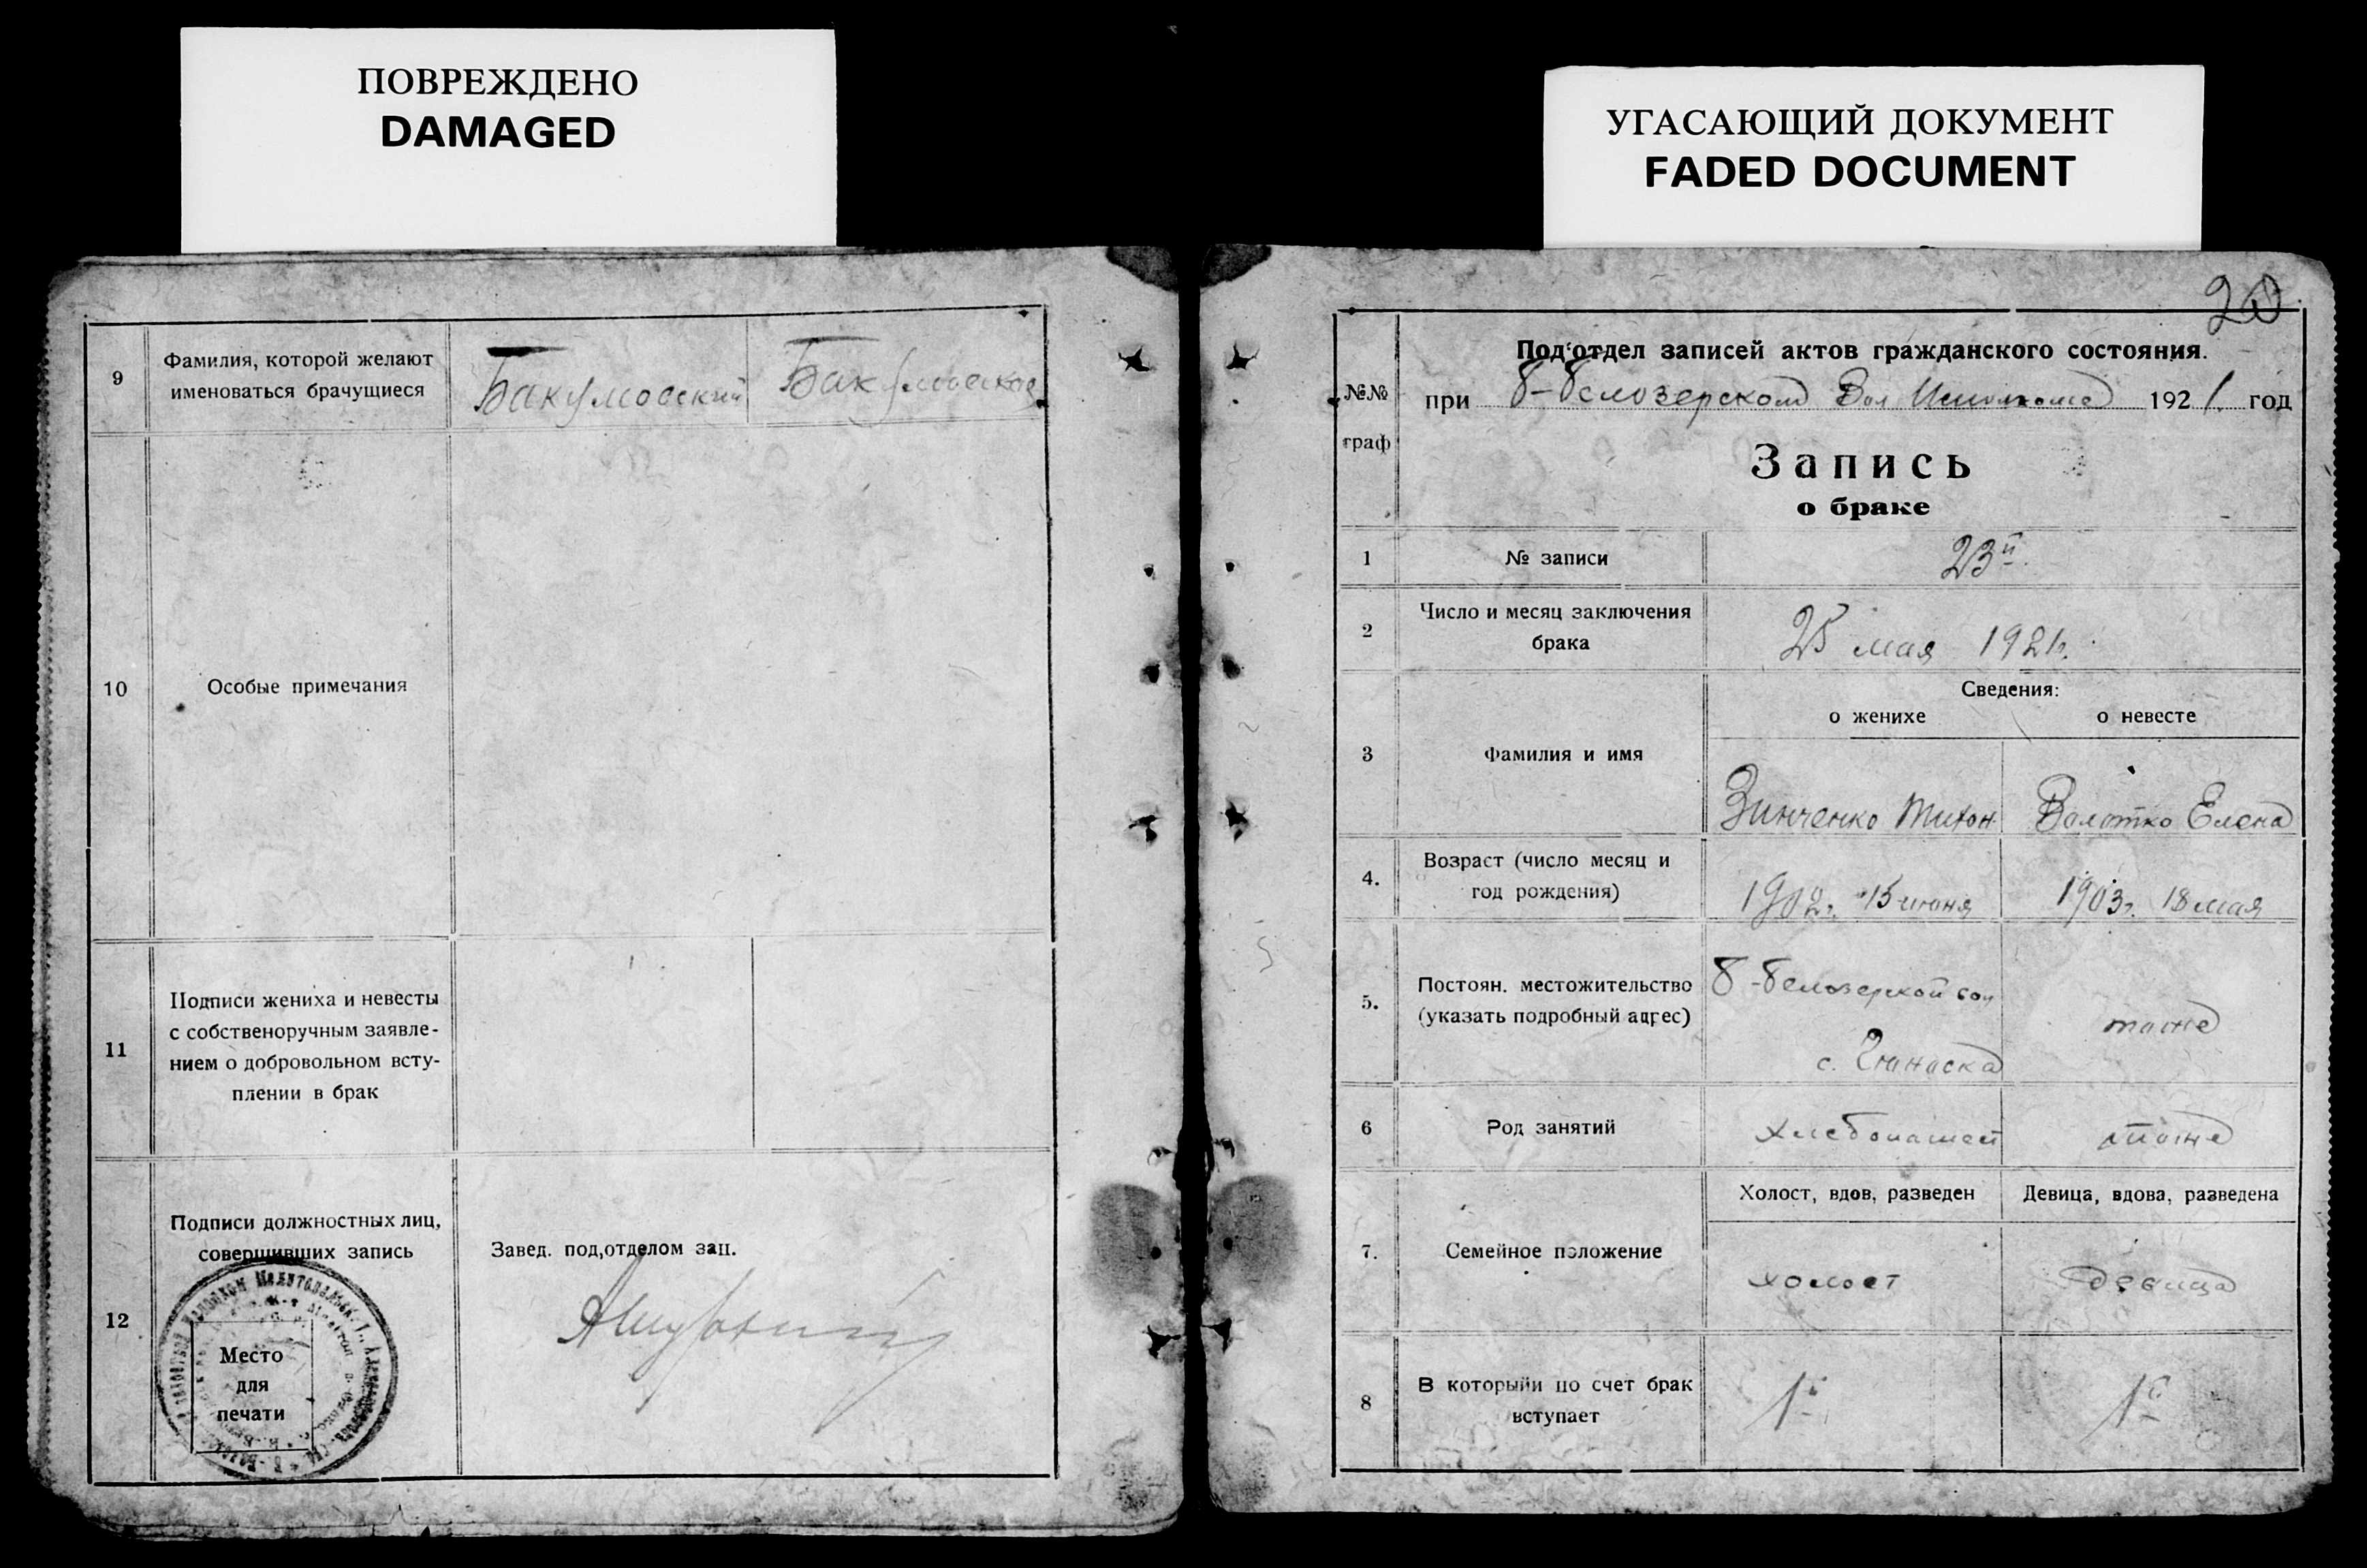 ПОВРЕЖДЕНО
DAMAGED
УГАСАЮЩИЙ ДОКУМЕНТ
FADED DOCUMENT
9
Фамилия, которой желают
именоваться брачущиеся
Бакумовский
Бакумовская
10
Особые примечания
11
Подписи жениха и невесты
с собственоручным заявле-
нием о добровольном всту-
плении в брак
12
Подписи должностных лиц,
совершивших запись
Завед. под,отделом зап.
Место
для
печати
20
№№
граф
Под'отдел записей актов гражданского состояния.
при Б-Белозерском Вол Исполкоме 1921. год
Запись
о браке
1
№ записи
23й
2
Число и месяц заключения
брака
25 мая 1921г.
Сведения:
о женихе
о невесте
3
Фамилия и имя
Зинченко Тихон
Волотко Елена
4.
Возраст (число месяц и
год рождения)
1902г. 15 июня
1903г. 18 мая
5.
Постоян. местожительство
(указать подробный адрес)
Б-Белозерской вол
с.
тоже
6
Род занятий
хлебопашец
тоже
7.
Семейное положение
Холост, вдов, разведен
Девица, вдова, разведена
холост
девица
8
В которыйи по счет брак
вступает
1й
1й